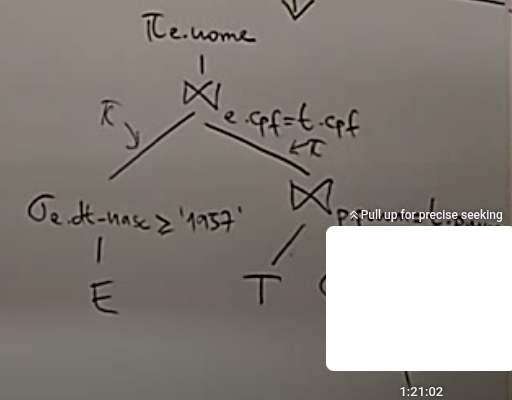 π e.nome
⋈ e.cpf=t.cpf
π
←π
σ e.dt-nasc ≥ '1957'
⋈
Pull up for precise seeking
E
T
1:21:02